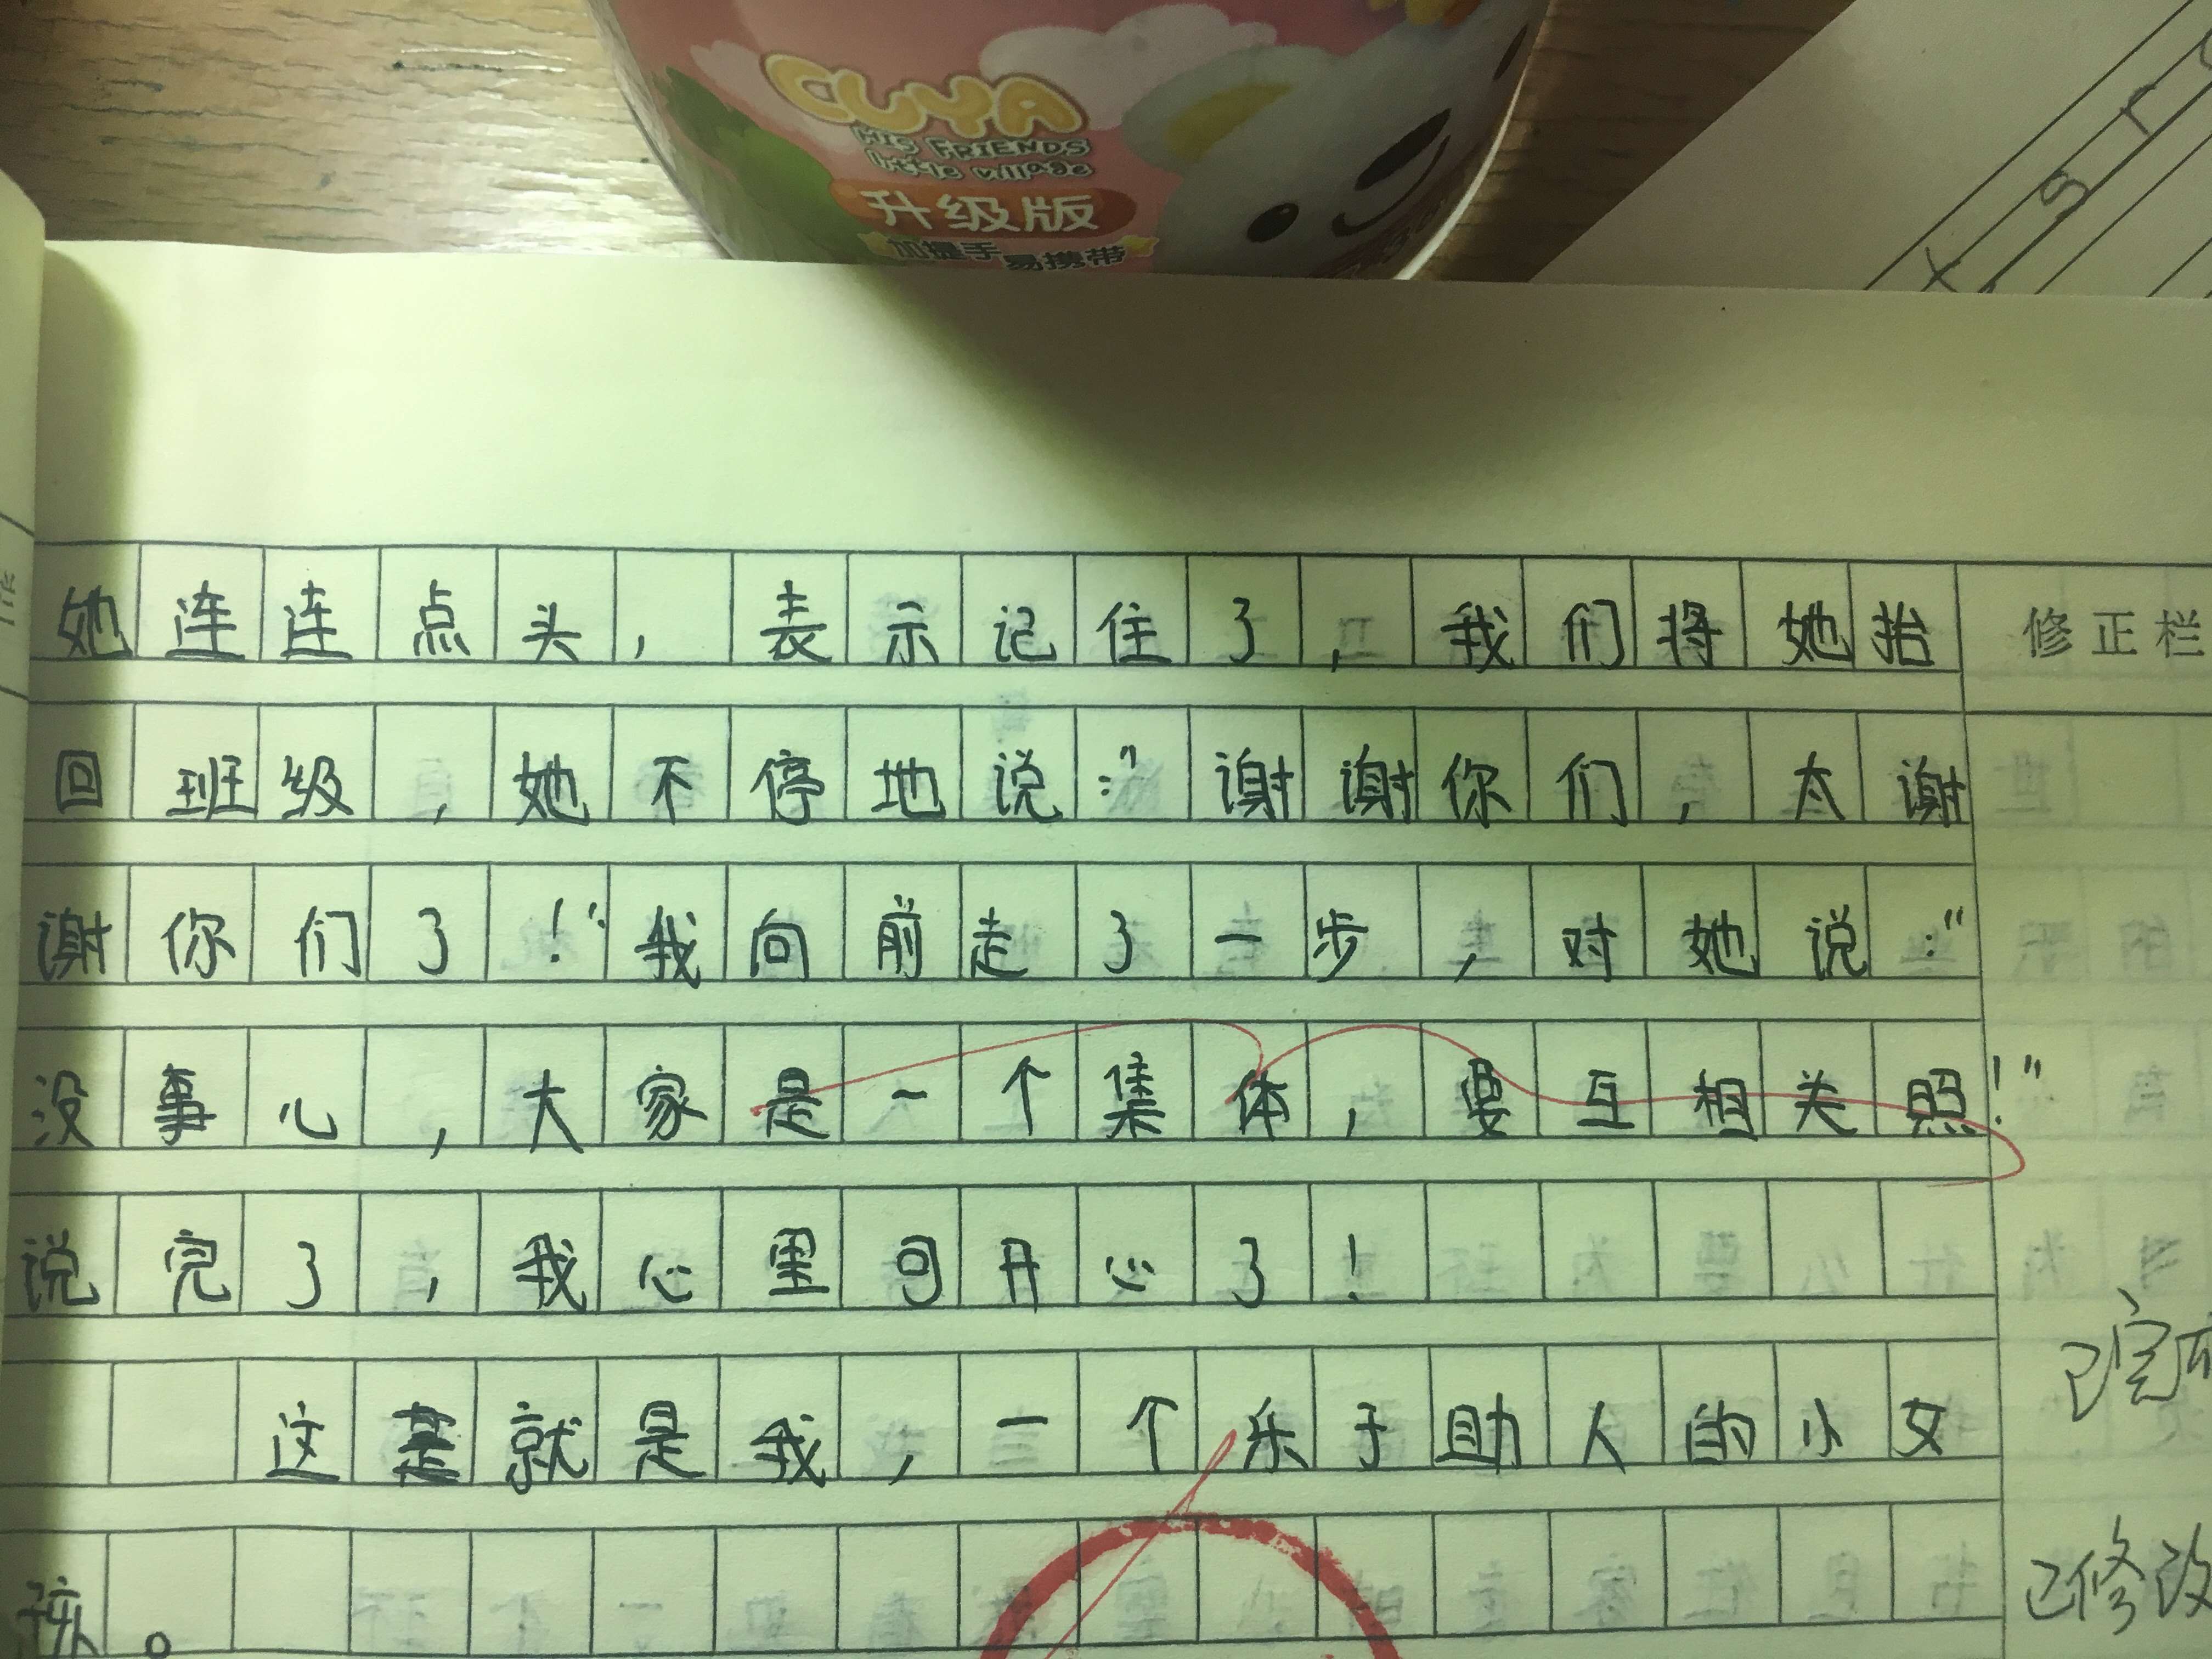 CUYA
HIS FRIENDS
little village
升级版
加提手易携带
她连连点头，表示记住了，我们将她抬
修正栏
回班级，她不停地说:"谢谢你们，太谢
谢你们了！"我向前走了一步，对她说:"
没事心，大家是一个集体，要互相关照！"
说完了，我心里可开心了！
这就是我，一个乐于助人的小女
孩。
已完
已修改